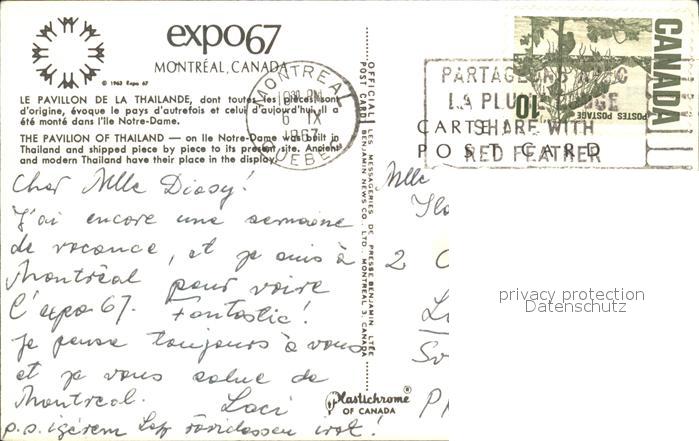 expo67
MONTRÉAL, CANADA
© 1963 Expo 67
LE PAVILLON DE LA THAILANDE, dont toutes les pièces sont
d'origine, évoque le pays d'autrefois et celui d'aujourd'hui. Il a
été monté dans l'île Notre-Dame.
THE PAVILION OF THAILAND — on Ile Notre-Dame was built in
Thailand and shipped piece by piece to its present site. Ancient
and modern Thailand have their place in the display.
MONTREAL
PM
6 IX
1967
QUEBEC
Cher Mlle Diosy!
J'ai encore une semaine
de vacance, et je suis à
Montréal pour voire
l'expo 67. Fantastic!
je pense toujours à vous
et je vous salue de
Montreal. Laci
p.s. igérem hogy rövidesen irok!
OFFICIAL POST CARD
LES MESSAGERIES DE PRESSE BENJAMIN LTÉE
BENJAMIN NEWS CO., LTD., MONTREAL 3, CANADA
Plastichrome®
OF CANADA
CANADA
10
POSTES POSTAGE
PARTAGEONS AVEC
LA PLUME ROUGE
SHARE WITH
RED FEATHER
CARTE
POST CARD
Mlle
2
privacy protection
Datenschutz